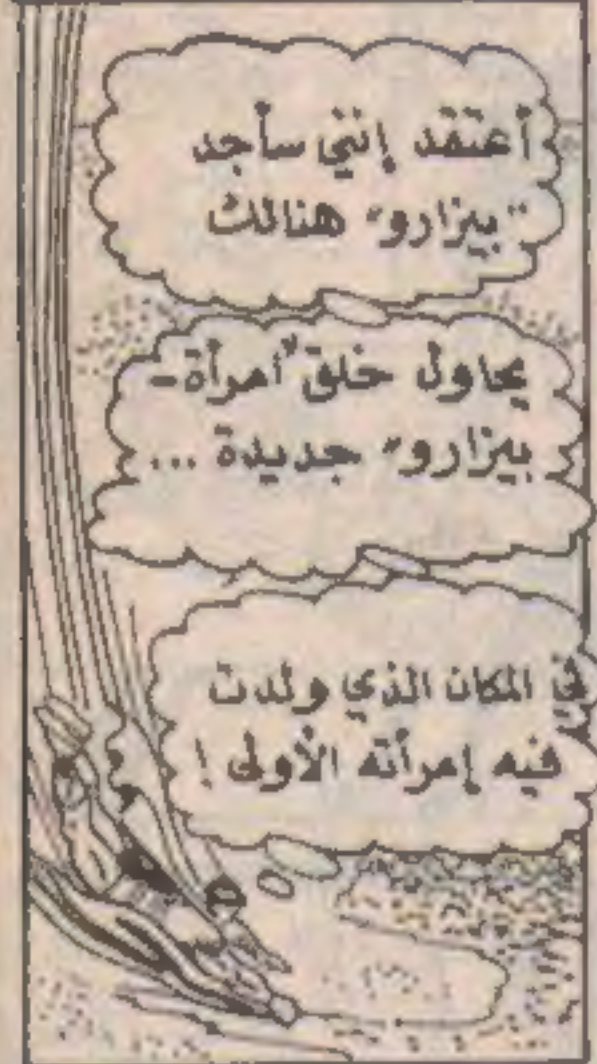 أعتقد إنني سأجد
"بيزارو" هنالك
يحاول خلق "امرأة-
بيزارو" جديدة ...
في المكان الذي ولدت
فيه إمرأته الأولى !